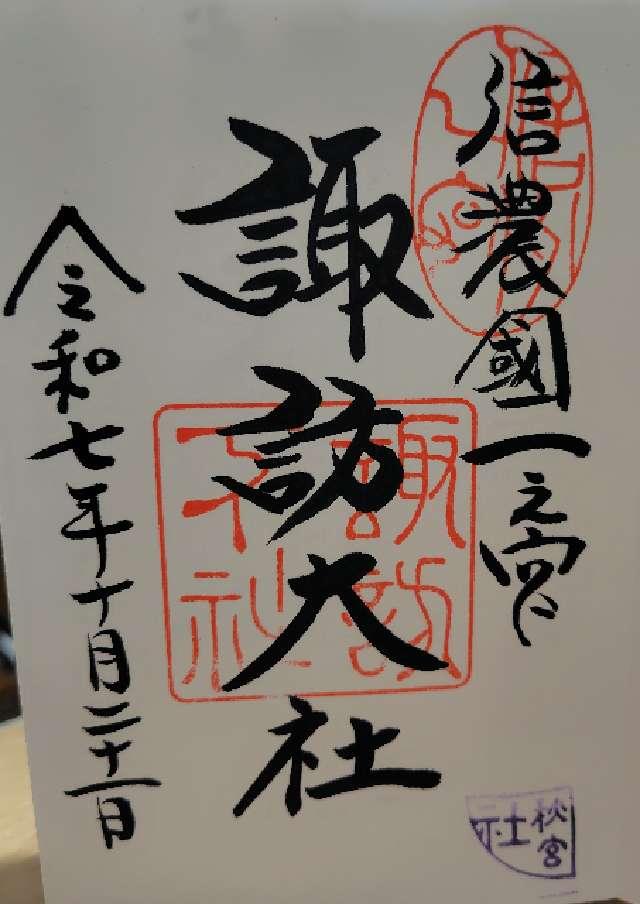 信濃國一之宮
諏訪大社
諏訪
下社
令和七年十月二十一日
秋宮
社